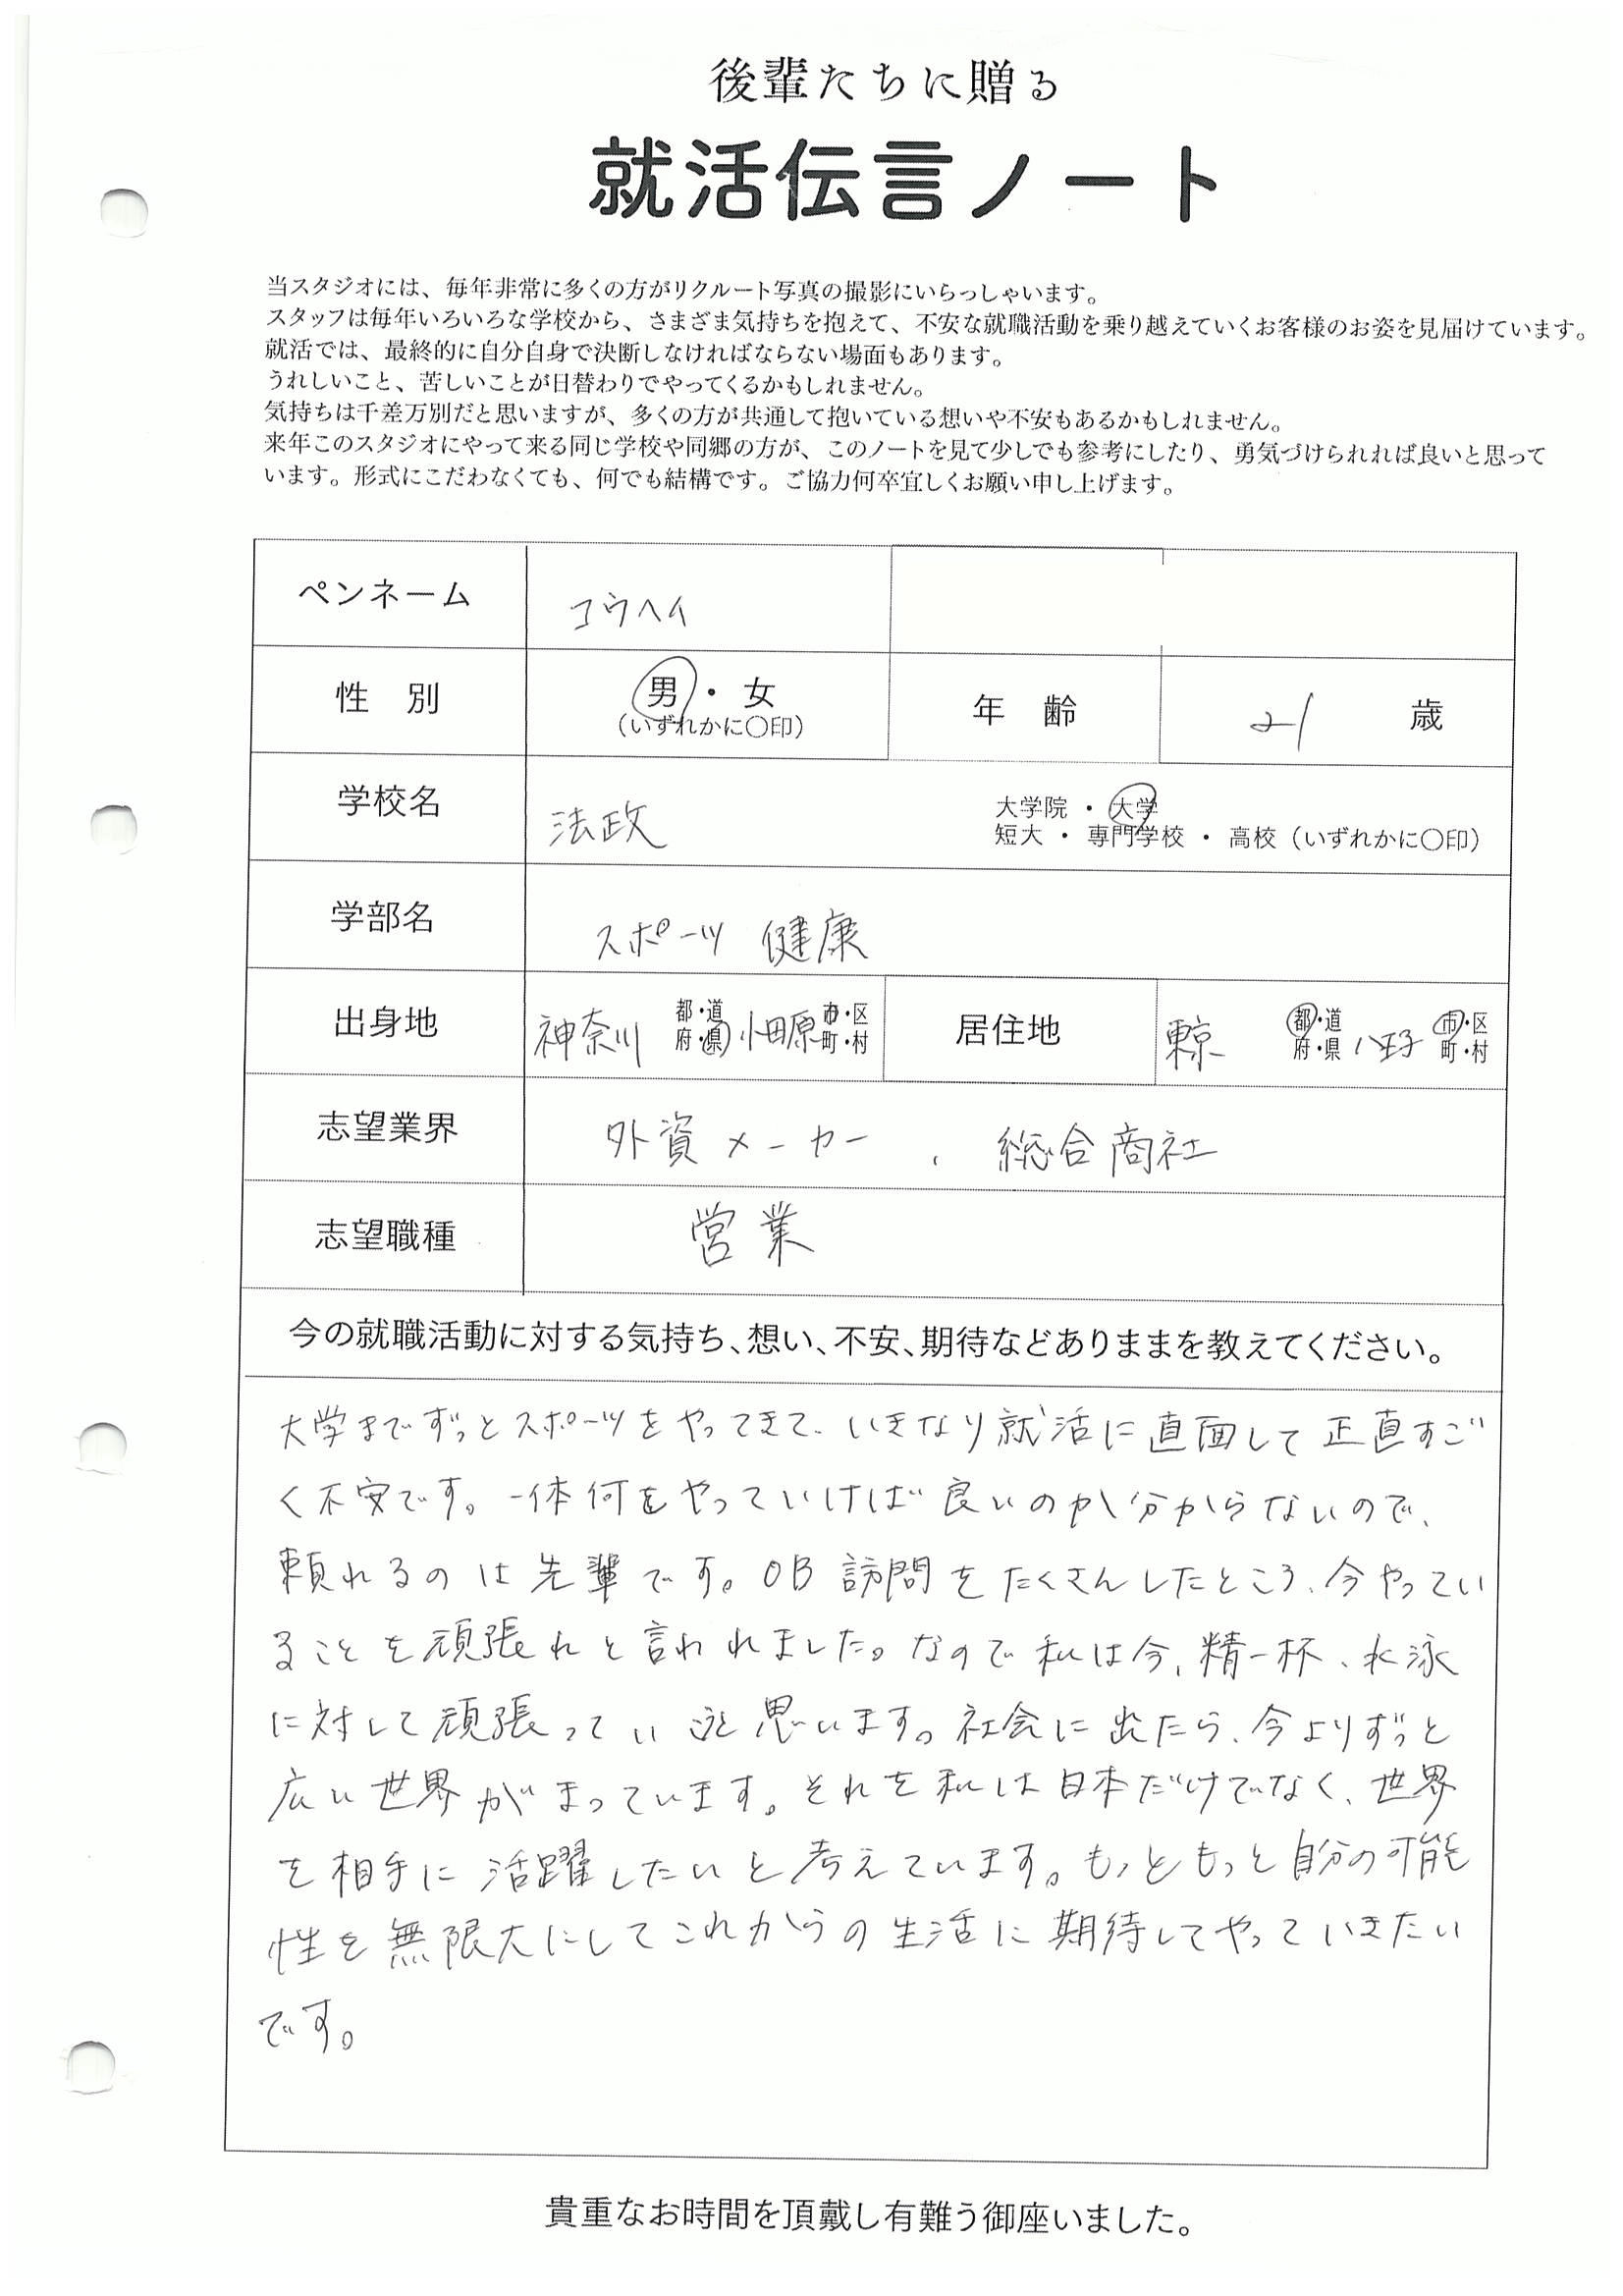 後輩たちに贈る
就活伝言ノート
当スタジオには、毎年非常に多くの方がリクルート写真の撮影にいらっしゃいます。
スタッフは毎年いろいろな学校から、さまざま気持ちを抱えて、不安な就職活動を乗り越えていくお客様のお姿を見届けています。
就活では、最終的に自分自身で決断しなければならない場面もあります。
うれしいこと、苦しいことが日替わりでやってくるかもしれません。
気持ちは千差万別だと思いますが、多くの方が共通して抱いている想いや不安もあるかもしれません。
来年このスタジオにやって来る同じ学校や同郷の方が、このノートを見て少しでも参考にしたり、勇気づけられれば良いと思って
います。形式にこだわなくても、何でも結構です。ご協力何卒宜しくお願い申し上げます。
ペンネーム コウヘイ
性 別 男・女 年 齢 21 歳
(いずれかに〇印)
学校名 法政 大学院 ・ 大学
短大 ・ 専門学校 ・ 高校（いずれかに〇印）
学部名 スポーツ 健康
出身地 神奈川 都・道 府・県 小田原 市・区 町・村 居住地 東京 都・道 府・県 八王子 市・区 町・村
志望業界 外資メーカー、総合商社
志望職種 営業
今の就職活動に対する気持ち、想い、不安、期待などありままを教えてください。
大学までずっとスポーツをやってきて、いきなり就活に直面して正直すご
く不安です。一体何をやっていけば良いのか分からないので、
頼れるのは先輩です。OB訪問をたくさんしたところ、今やってい
ることを頑張れと言われました。なので私は今、精一杯、水泳
に対して頑張ってい と思います。社会に出たら、今よりずっと
広い世界がまっています。それを私は日本だけでなく、世界
を相手に活躍したいと考えています。もっともっと自分の可能
性を無限大にしてこれからの生活に期待してやっていきたい
です。
貴重なお時間を頂戴し有難う御座いました。